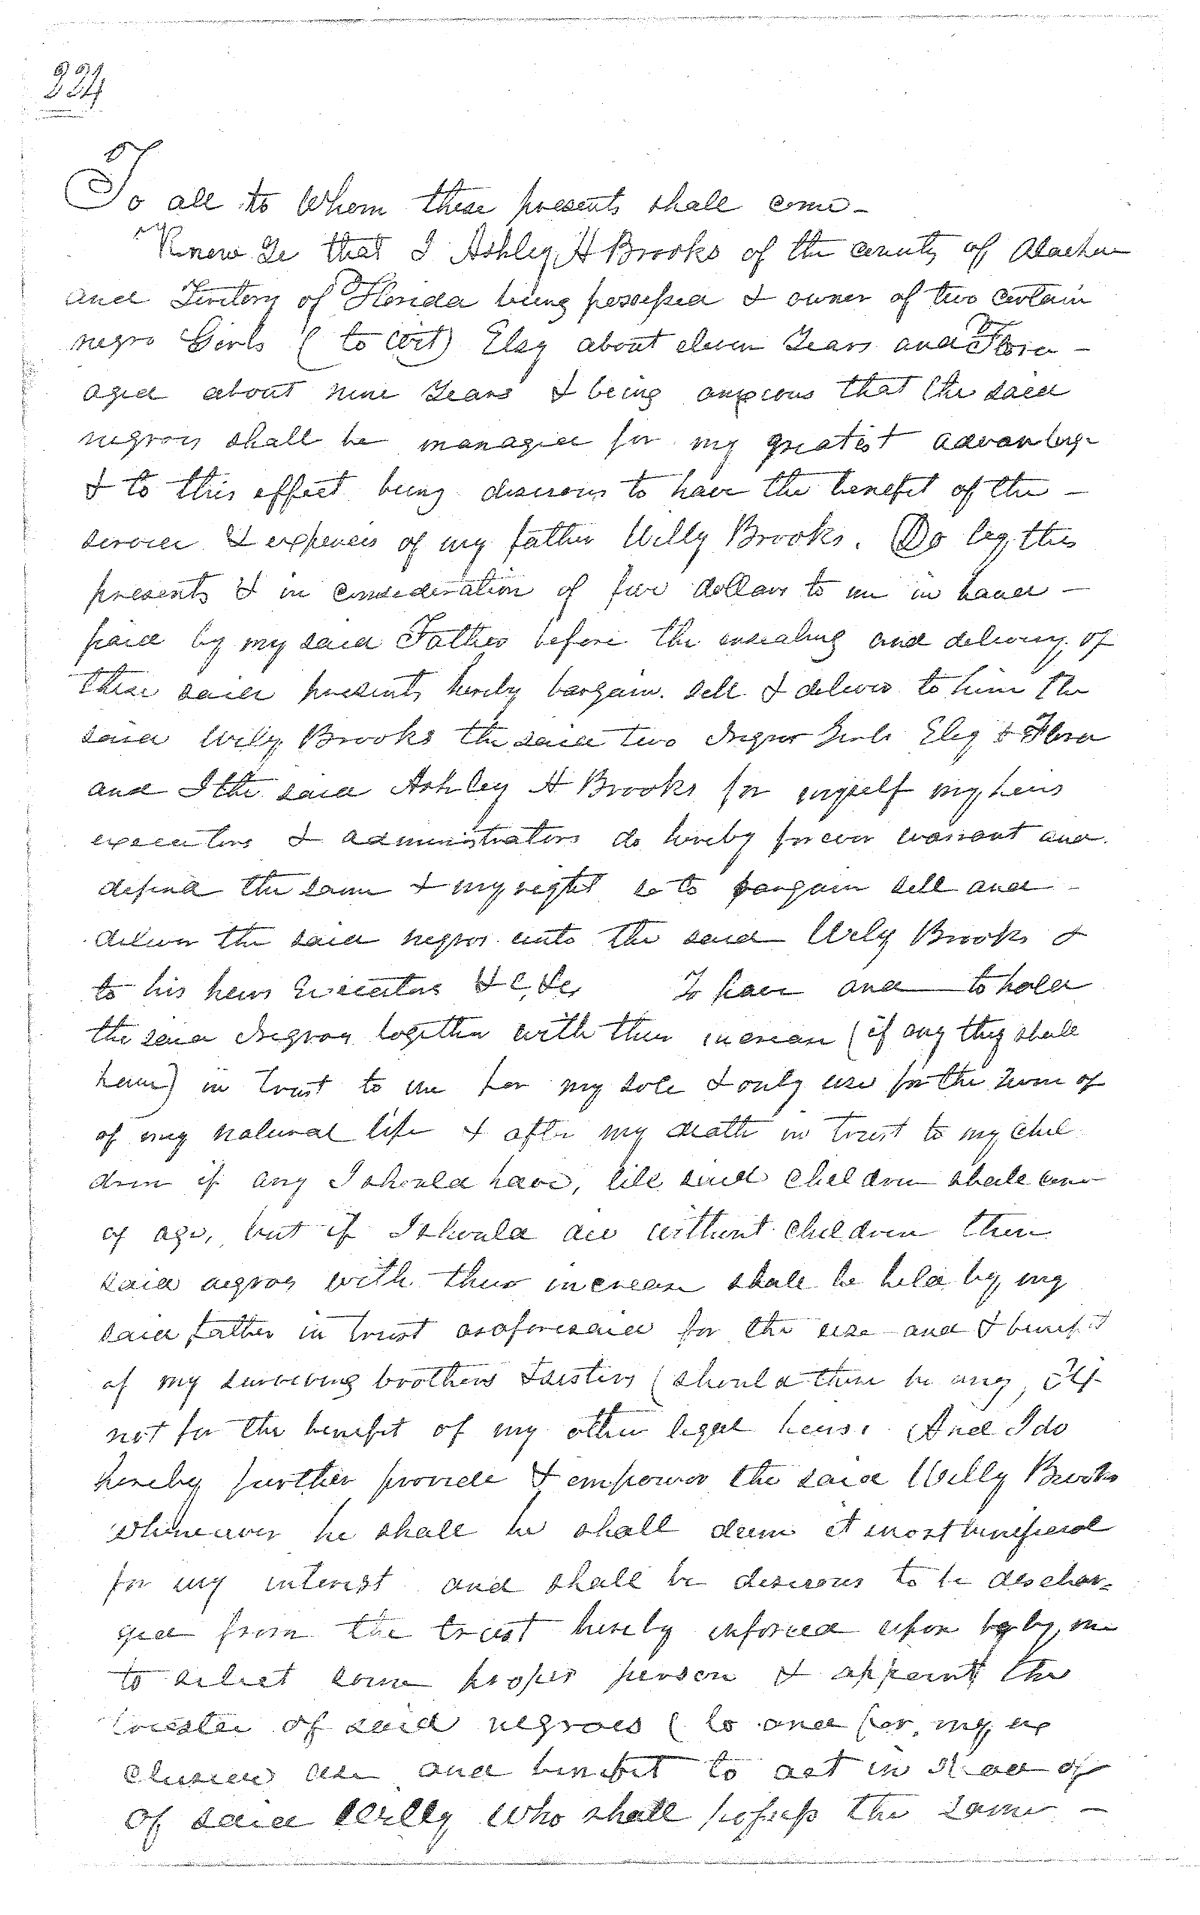 224
To all to Whom these presents shall come -
Know Ye that I Ashley H Brooks of the county of Alachua
and Territory of Florida being possessed & owner of two certain
negro Girls ( to wit) Elsy about eleven Years and Flora -
aged about nine Years & being anxious that the said
negroes shall be managed for my greatest advantage
& to this effect being desirous to have the benefit of the -
service & expences of my father Willy Brooks. Do by these
presents & in consideration of five dollars to me in hand -
paid by my said Father before the ensealing and delivery of
these said presents hereby bargain sell & deliver to him the
said Wily Brooks the said two Negro Girls Elsy & Flora
and I the said Ashley H Brooks for myself my heirs
executors & administrators do hereby forever warrant and
defend the same & my right so to bargain sell and -
deliver the said negros unto the said Wily Brooks &
to his heirs Executors &C, &c, To have and to hold
the said Negroes together with their increase (if any they shall
have) in trust to me for my sole & only use for the Term of
of my natural life & after my death in trust to my chil
dren if any I should have, till said children shall come
of age, but if I should die without children then
said negros with their increase shall be held by my
said father in trust as aforesaid for the use and & benefit
of my surviving brothers & sisters (should there be any, If
not for the benefit of my other legal heirs. And I do
hereby further provide & empower the said Willy Brooks
whenever he shall he shall deem it most beneficial
for my interest and shall be desirous to be dischar-
ged from the trust hereby enforced upon by by me
to select some proper person & appoint the
trustee of said negroes ( to and for my ex
clusive use and benefit to act in stead of
of said Willy who shall possess the same -